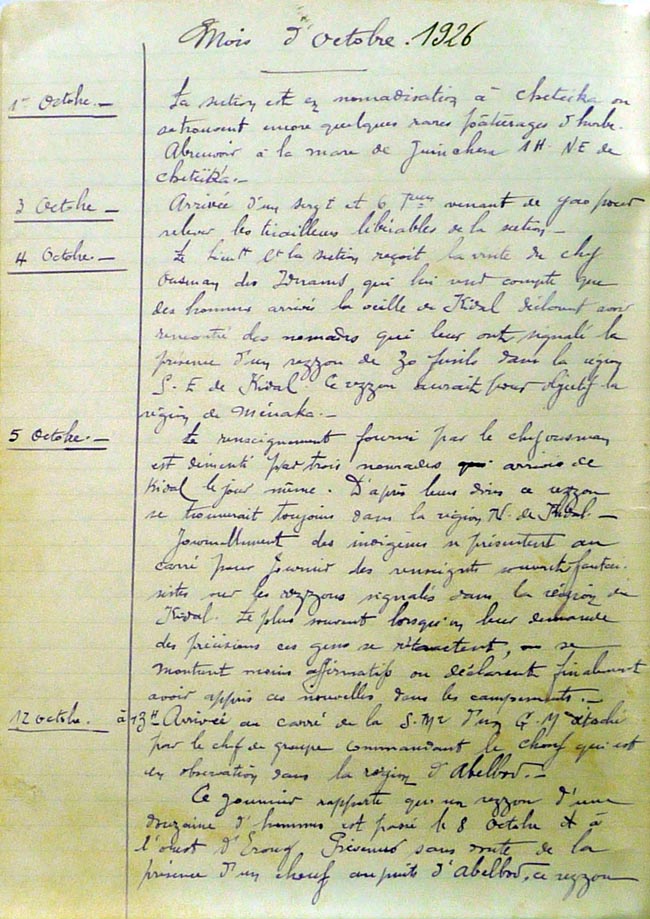 Mois d'Octobre. 1926
1er Octobre. — La section est en nomadisation à Cheteika ou
se trouvent encore quelques rares pâturages d'herbe.
Abreuvoir à la mare de 1H. NE de
Cheteika. —
3 Octobre — Arrivée d'un sergt et 6 venant de Gao pour
relever les tirailleurs libérables de la section —
4 Octobre. — Le Lieutt Ct la section reçoit la visite du chef
Ousman des Idnams qui lui rend compte que
des hommes arrivés la veille de Kidal déclarent avoir
rencontré des nomades qui leur ont signalé la
présence d'un rezzou de 30 fusils dans la région
S. E de Kidal. Ce rezzou aurait pour objectif la
région de Ménaka. —
5 Octobre. — Le renseignement fourni par le chef Ousman
est démenti par trois nomades arrivés de
Kidal le jour même. D'après leurs dires ce rezzou
se trouverait toujours dans la région N. de Kidal. —
Journellement des indigènes se présentent au
carré pour fournir des renseignts souvent fantai-
sistes sur les rezzous signalés dans la région de
Kidal. Le plus souvent lorsqu'on leur demande
des précisions ces gens se rétractent, ou se
montrent moins affirmatifs ou déclarent finalement
avoir appris ces nouvelles dans les campements. —
12 Octobre. à 13H Arrivée au carré de la S. d'un G. M détaché
par le chef de groupe commandant le chouf qui est
en observation dans la région d'Abelbod. —
Ce goumier rapporte qu'un rezzou d'une
douzaine d'hommes est passé le 8 Octobre à
l'ouest d'Eroug. Prévenus sans doute de la
présence d'un chouf au puits d'Abelbod, ce rezzou